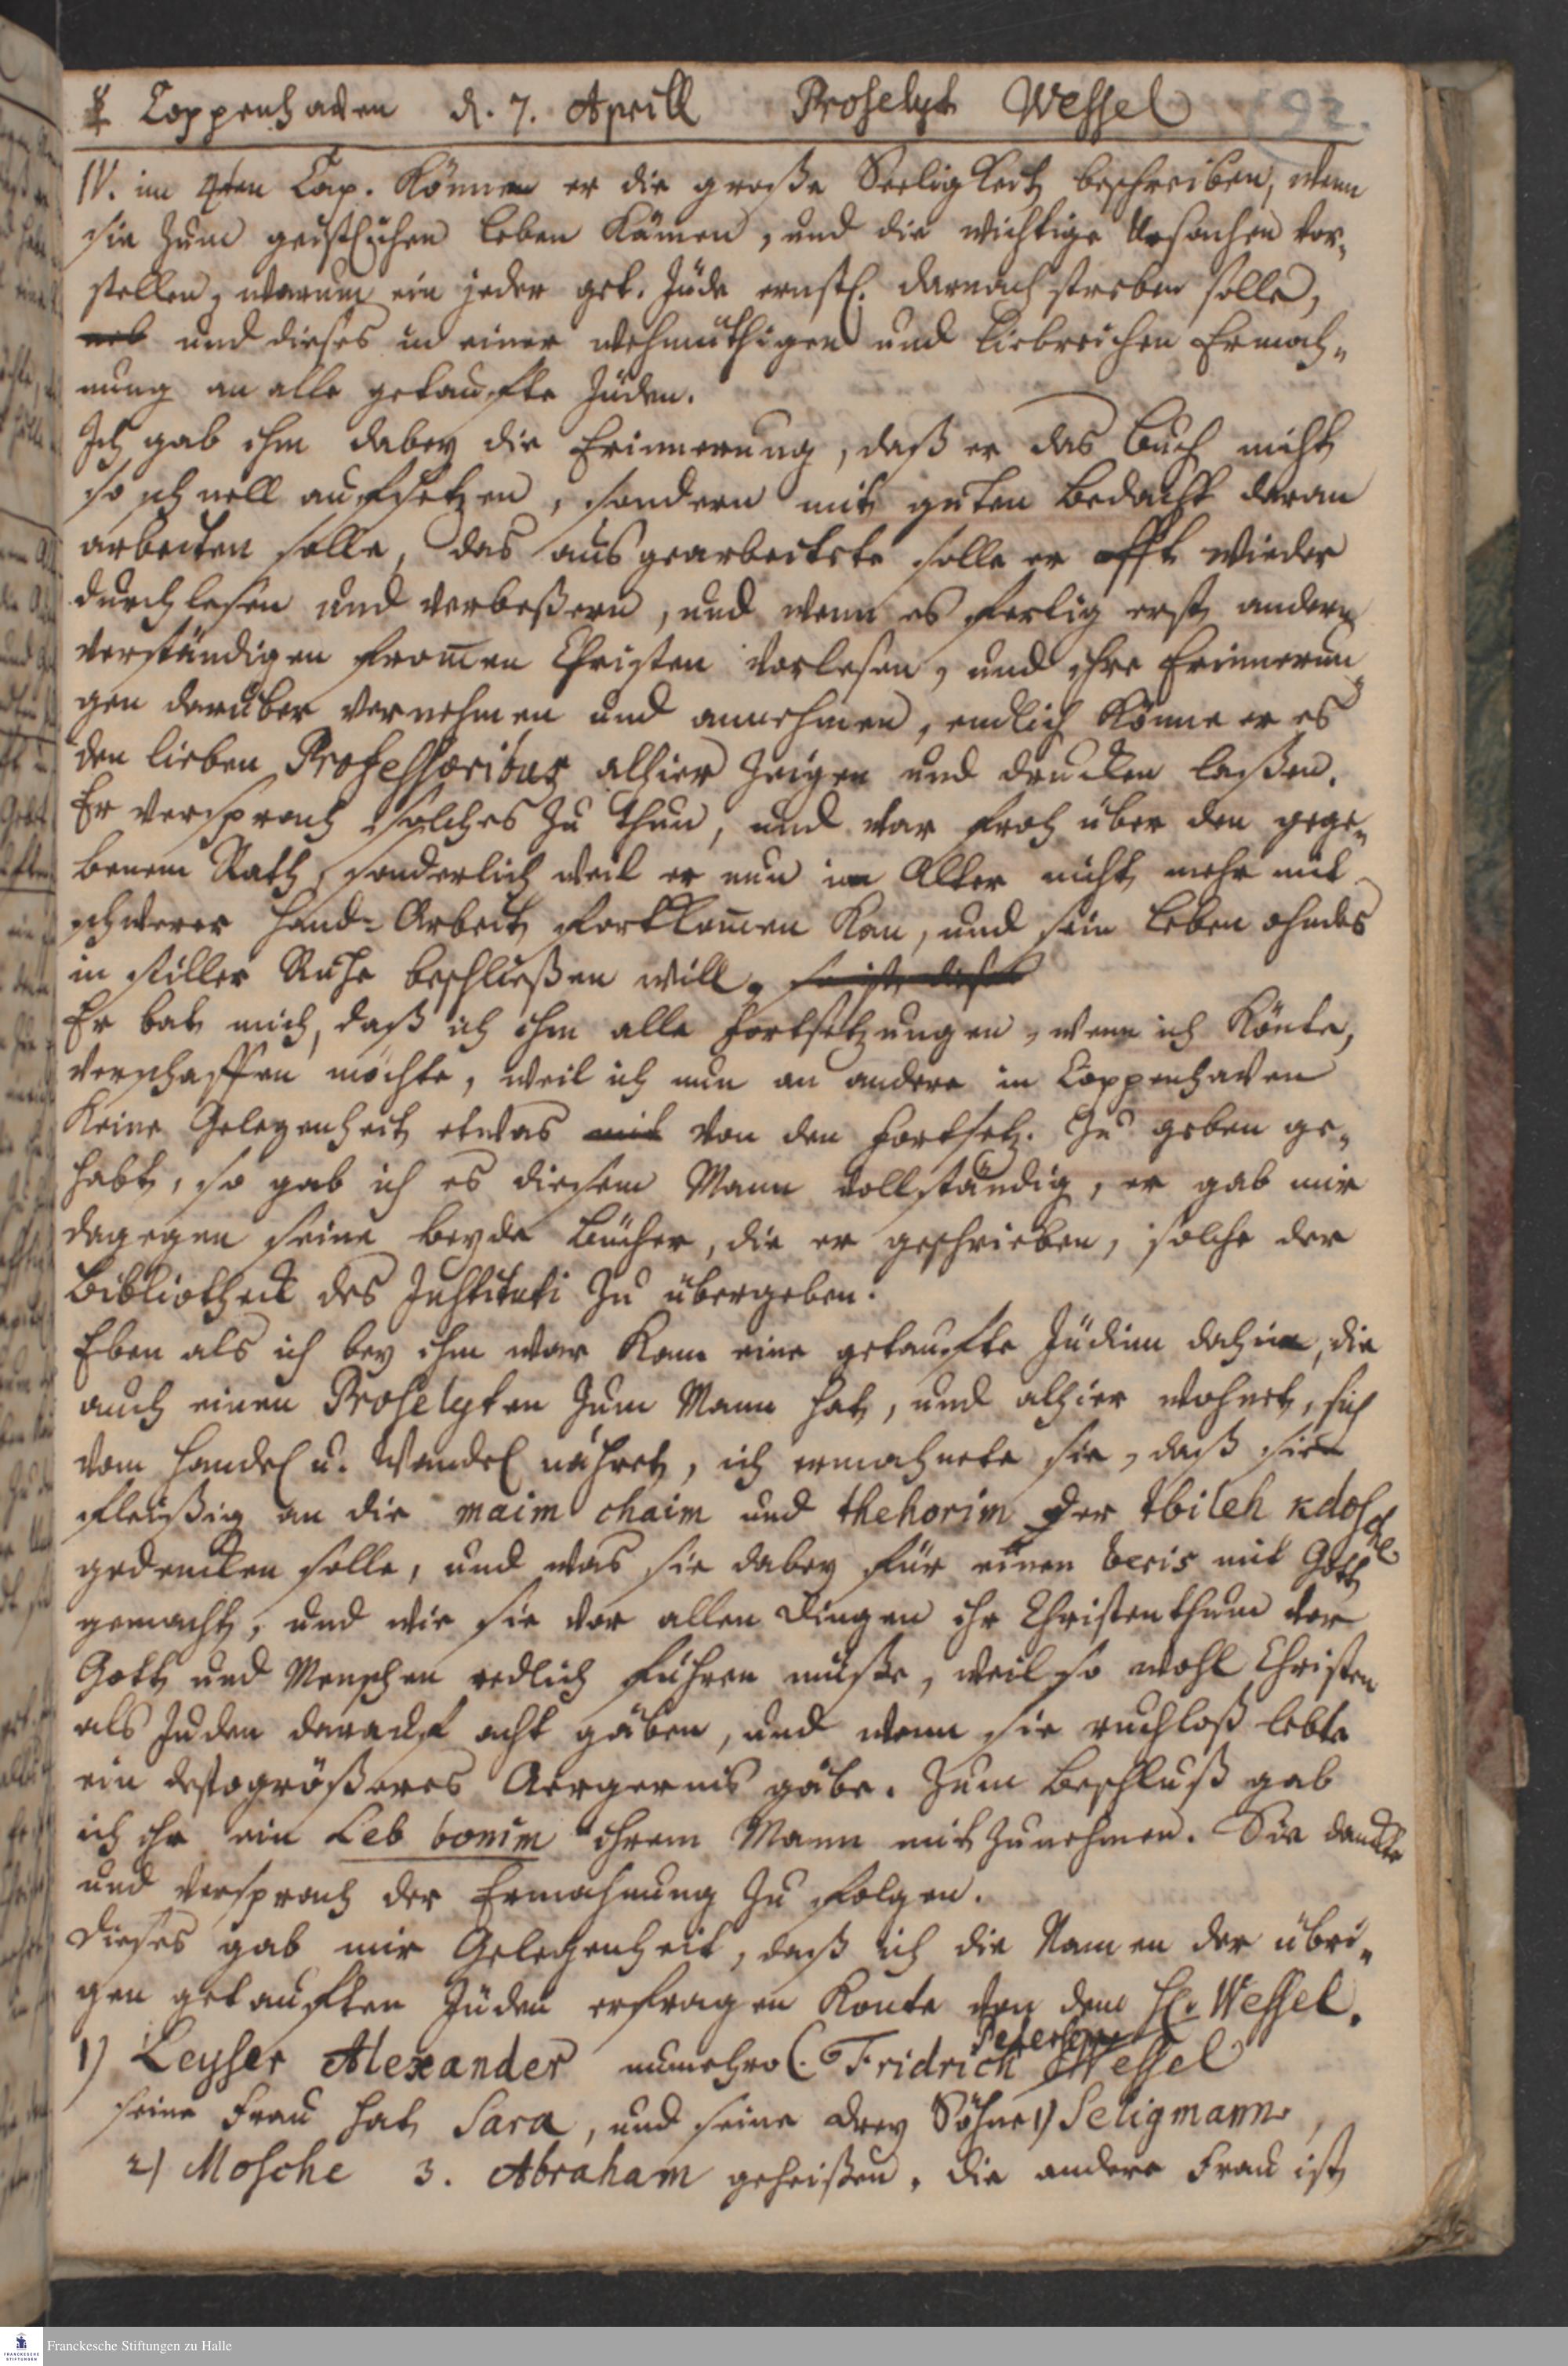 ☿ Coppenhaven d. 7. Aprill Proselyt Wessel 92.
IV. im 4ten Cap. Könne er die große Seeligkeit beschreiben, wenn
sie zum geistlichen Leben kämen, und die wichtige Ursachen vor-
stellen, warum ein jeder get. Jüde ernstl. darnach streben solle,
und dieses in einer wehmüthigen und liebreichen Ermah-
nung an alle getaufte Jüden.
Ich gab ihm dabey die Erinnerung, daß er das Buch nicht
so schnell aufsetzen, sondern mit guten Bedacht daran
arbeiten solle, das ausgearbeitete solle er offt wieder
durchlesen und verbeßern, und wenn es fertig erst andern
verständigen from̄en Christen vorlesen, und ihre Erinnerun-
gen darüber vernehmen und annehmen, endlich könne er es
den lieben Professoribus alhier zeigen und drucken laßen.
Er versprach solches zu thun, und war froh über den gege-
benem Rath, sonderlich weil er nun im Alter nicht mehr mit
schwerer Hand-Arbeit fortkom̄en kan, und sein Leben ohndes
in stiller Ruhe beschließen will.
Er bat mich, daß ich ihm alle Fortsetzungen, wenn ich könte,
verschaffen möchte, weil ich nun an andere in Coppenhaven
keine Gelegenheit etwas mit von den Fortsetz. zu geben ge-
habt, so gab ich es diesem Mann vollständig, er gab mir
dagegen seine beyde Bücher, die er geschrieben, solche der
Bibliotheck des Instituti zu übergeben.
Eben als ich bey ihm war kam eine getaufte Jüdinn dahin, die
auch einen Proselyten zum Mann hat, und alhier wohnet, sich
vom Handel u. Wandel nähret, ich ermahnete sie, daß sie
fleißig an die maim chaim und thehorim der tbileh kdosche
gedencken solle, und was sie dabey für einen beris mit Gott
gemacht, und wie sie vor allen Dingen ihr Christenthum vor
Gott und Menschen redlich führen müße, weil so wohl Christen
als Juden darauf acht gäben, und wenn sie ruchloß lebte
ein destogrößeres Aergernis gäbe. Zum Beschluß gab
ich ihr ein Leb tonim ihrem Mann mitzunehmen. Sie danckte
und versprach der Ermahnung zu folgen.
Dieses gab mir Gelegenheit, daß ich die Namen der übri-
gen getauften Jüden erfragen konte von dem H. Wessel.
1) Leyser Alexander nunmehro C. Fridrich Petersen Wessel
seine Frau hat Sara, und seine drey Söhne 1) Seligmann,
2) Mosche 3. Abraham geheißen. die andere Frau ist
Franckesche Stiftungen zu Halle